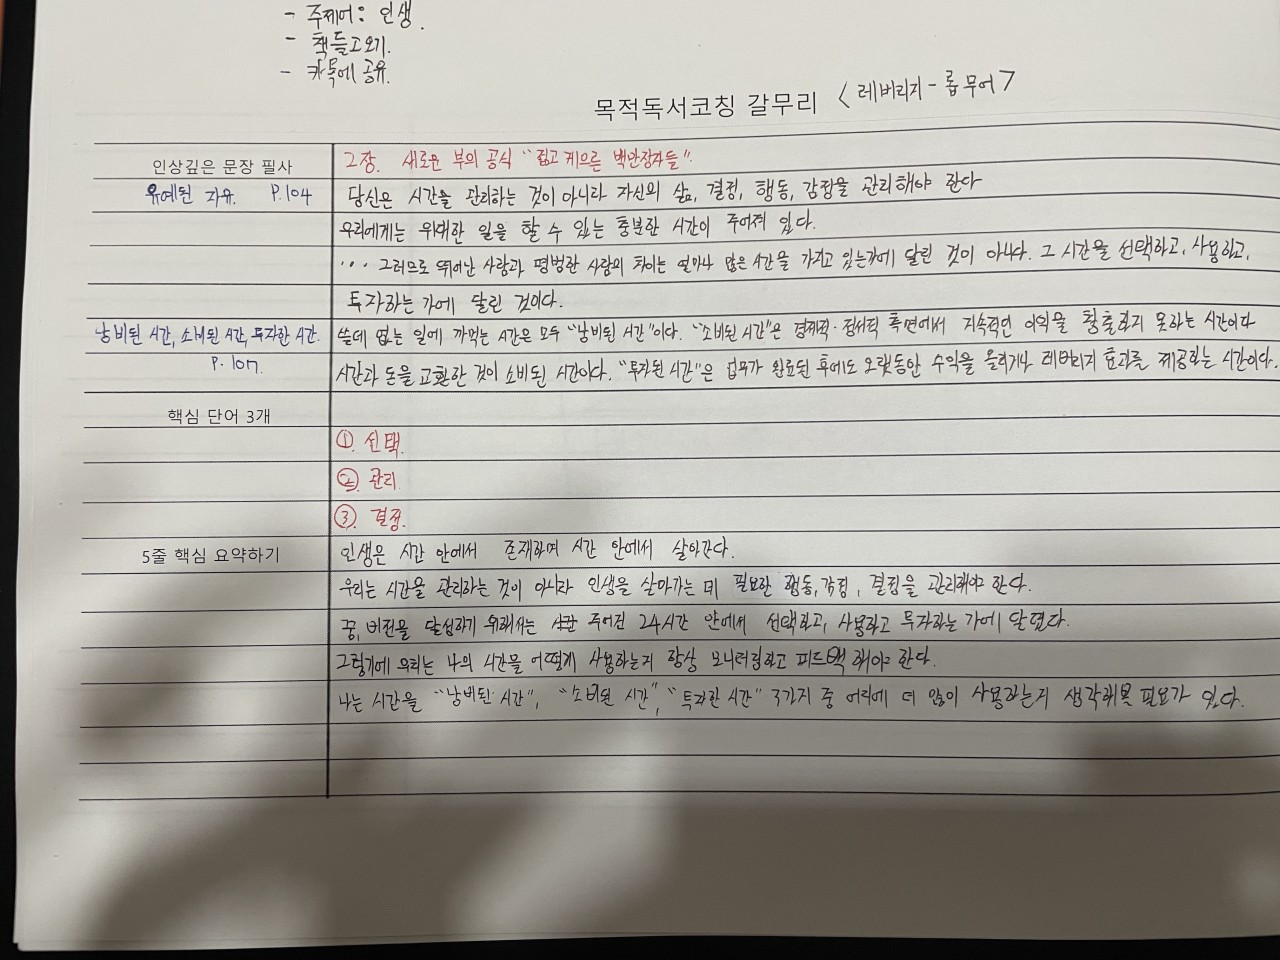 - 주제어: 인생.
- 책들고오기.
- 카톡에 공유.
목적독서코칭 갈무리 <레버리지 - 롭 무어>
인상깊은 문장 필사
2장. 새로운 부의 공식 "젊고 게으른 백만장자들".
유예된 자유. P.104
당신은 시간을 관리하는 것이 아니라 자신의 삶, 결정, 행동, 감정을 관리해야 한다
우리에게는 위대한 일을 할 수 있는 충분한 시간이 주어져 있다.
... 그러므로 뛰어난 사람과 평범한 사람의 차이는 얼마나 많은 시간을 가지고 있는가에 달린 것이 아니다. 그 시간을 선택하고, 사용하고,
투자하는 가에 달린 것이다.
낭비된 시간, 소비된 시간, 투자한 시간.
쓸데 없는 일에 까먹는 시간은 모두 "낭비된 시간"이다. "소비된 시간"은 경제적·정서적 측면에서 지속적인 이익을 창출하지 못하는 시간이다
P.107.
시간과 돈을 교환한 것이 소비된 시간이다. "투자된 시간"은 업무가 완료된 후에도 오랫동안 수익을 올리거나 레버리지 효과를 제공하는 시간이다.
핵심 단어 3개
①. 선택.
②. 관리.
③. 결정.
5줄 핵심 요약하기
인생은 시간 안에서 존재하며 시간 안에서 살아간다.
우리는 시간을 관리하는 것이 아니라 인생을 살아가는 데 필요한 행동, 감정, 결정을 관리해야 한다.
꿈, 비전을 달성하기 위해서는 주어진 24시간 안에서 선택하고, 사용하고 투자하는 가에 달렸다.
그렇기에 우리는 나의 시간을 어떻게 사용하는지 항상 모니터링하고 피드백 해야 한다.
나는 시간을 "낭비된 시간", "소비된 시간", "투자한 시간" 3가지 중 어디에 더 많이 사용하는지 생각해볼 필요가 있다.